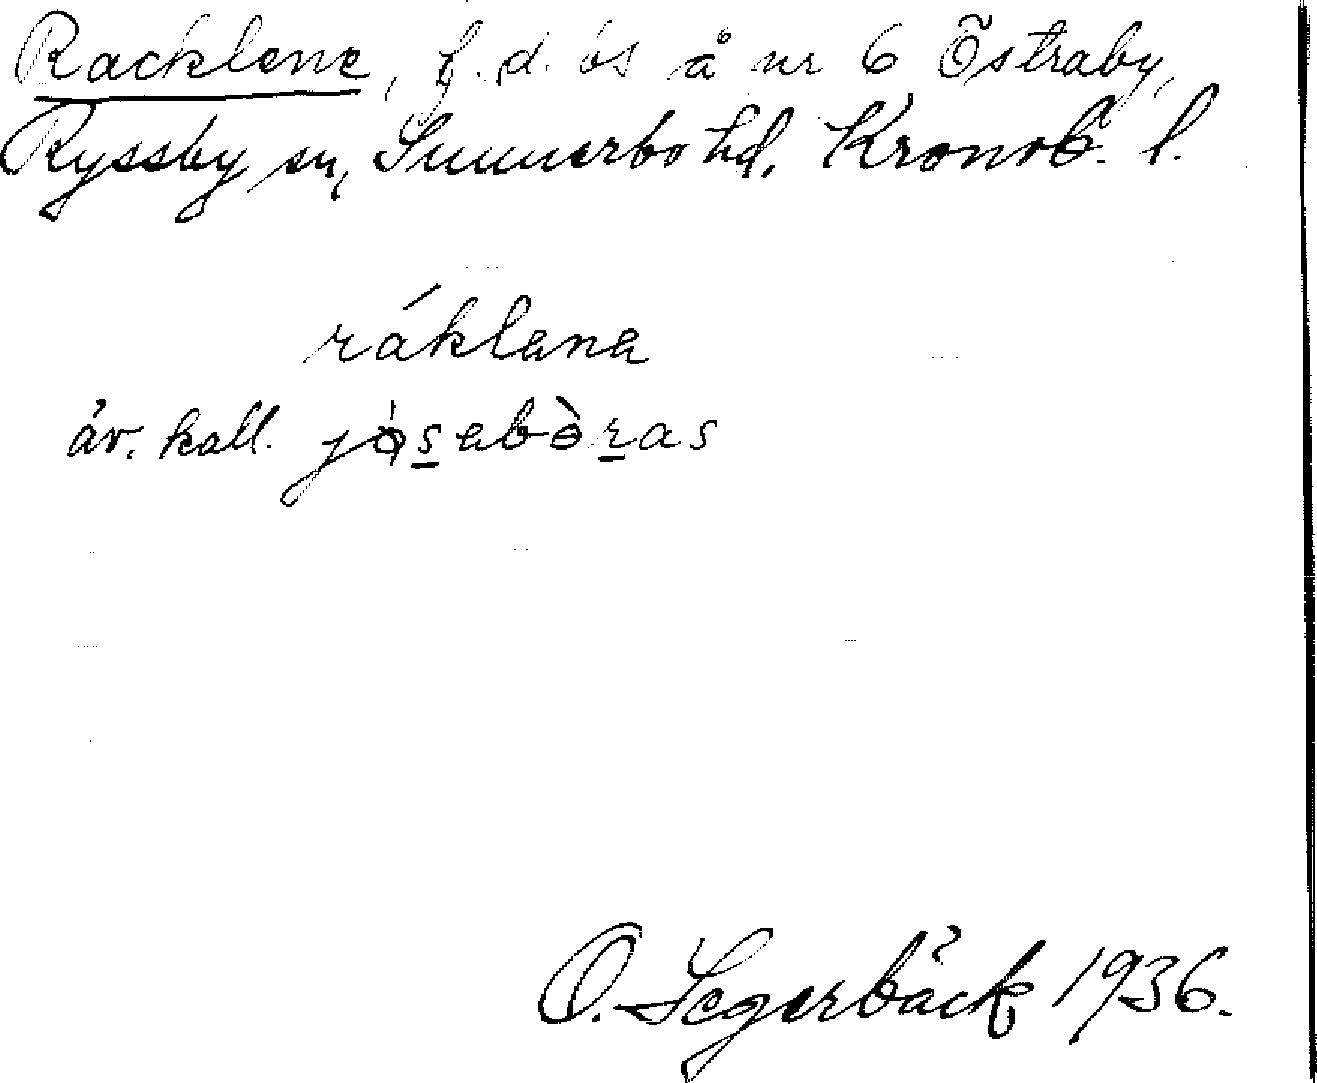 Racklene, f.d. bs å nr 6 Östraby,
Ryssby sn, Sunnerbo hd, Kronob. l.
ráklena
äv. kall. jósabòras
O. Segerbäck 1936.